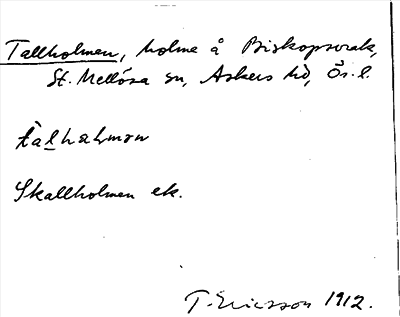 Tallholmen, holme å Biskopsvrak,
St. Mellösa sn, Askers hd, Ör. l.
tàlhalmən
Skallholmen ek.
T. Ericsson 1912.